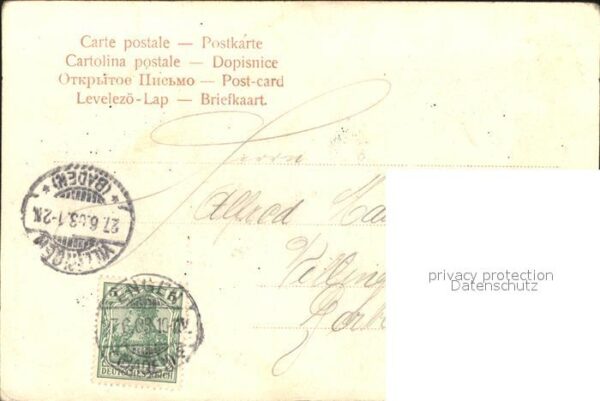 Carte postale — Postkarte
Cartolina postale — Dopisnice
Открытое Письмо — Post-card
Levelező-Lap — Briefkaart.
Herrn
Alfred
Villing
(BADEN)
27.6.03.1-2N.
VILLINGEN
ENGEN
(BADEN)
DEUTSCHES REICH
privacy protection
Datenschutz